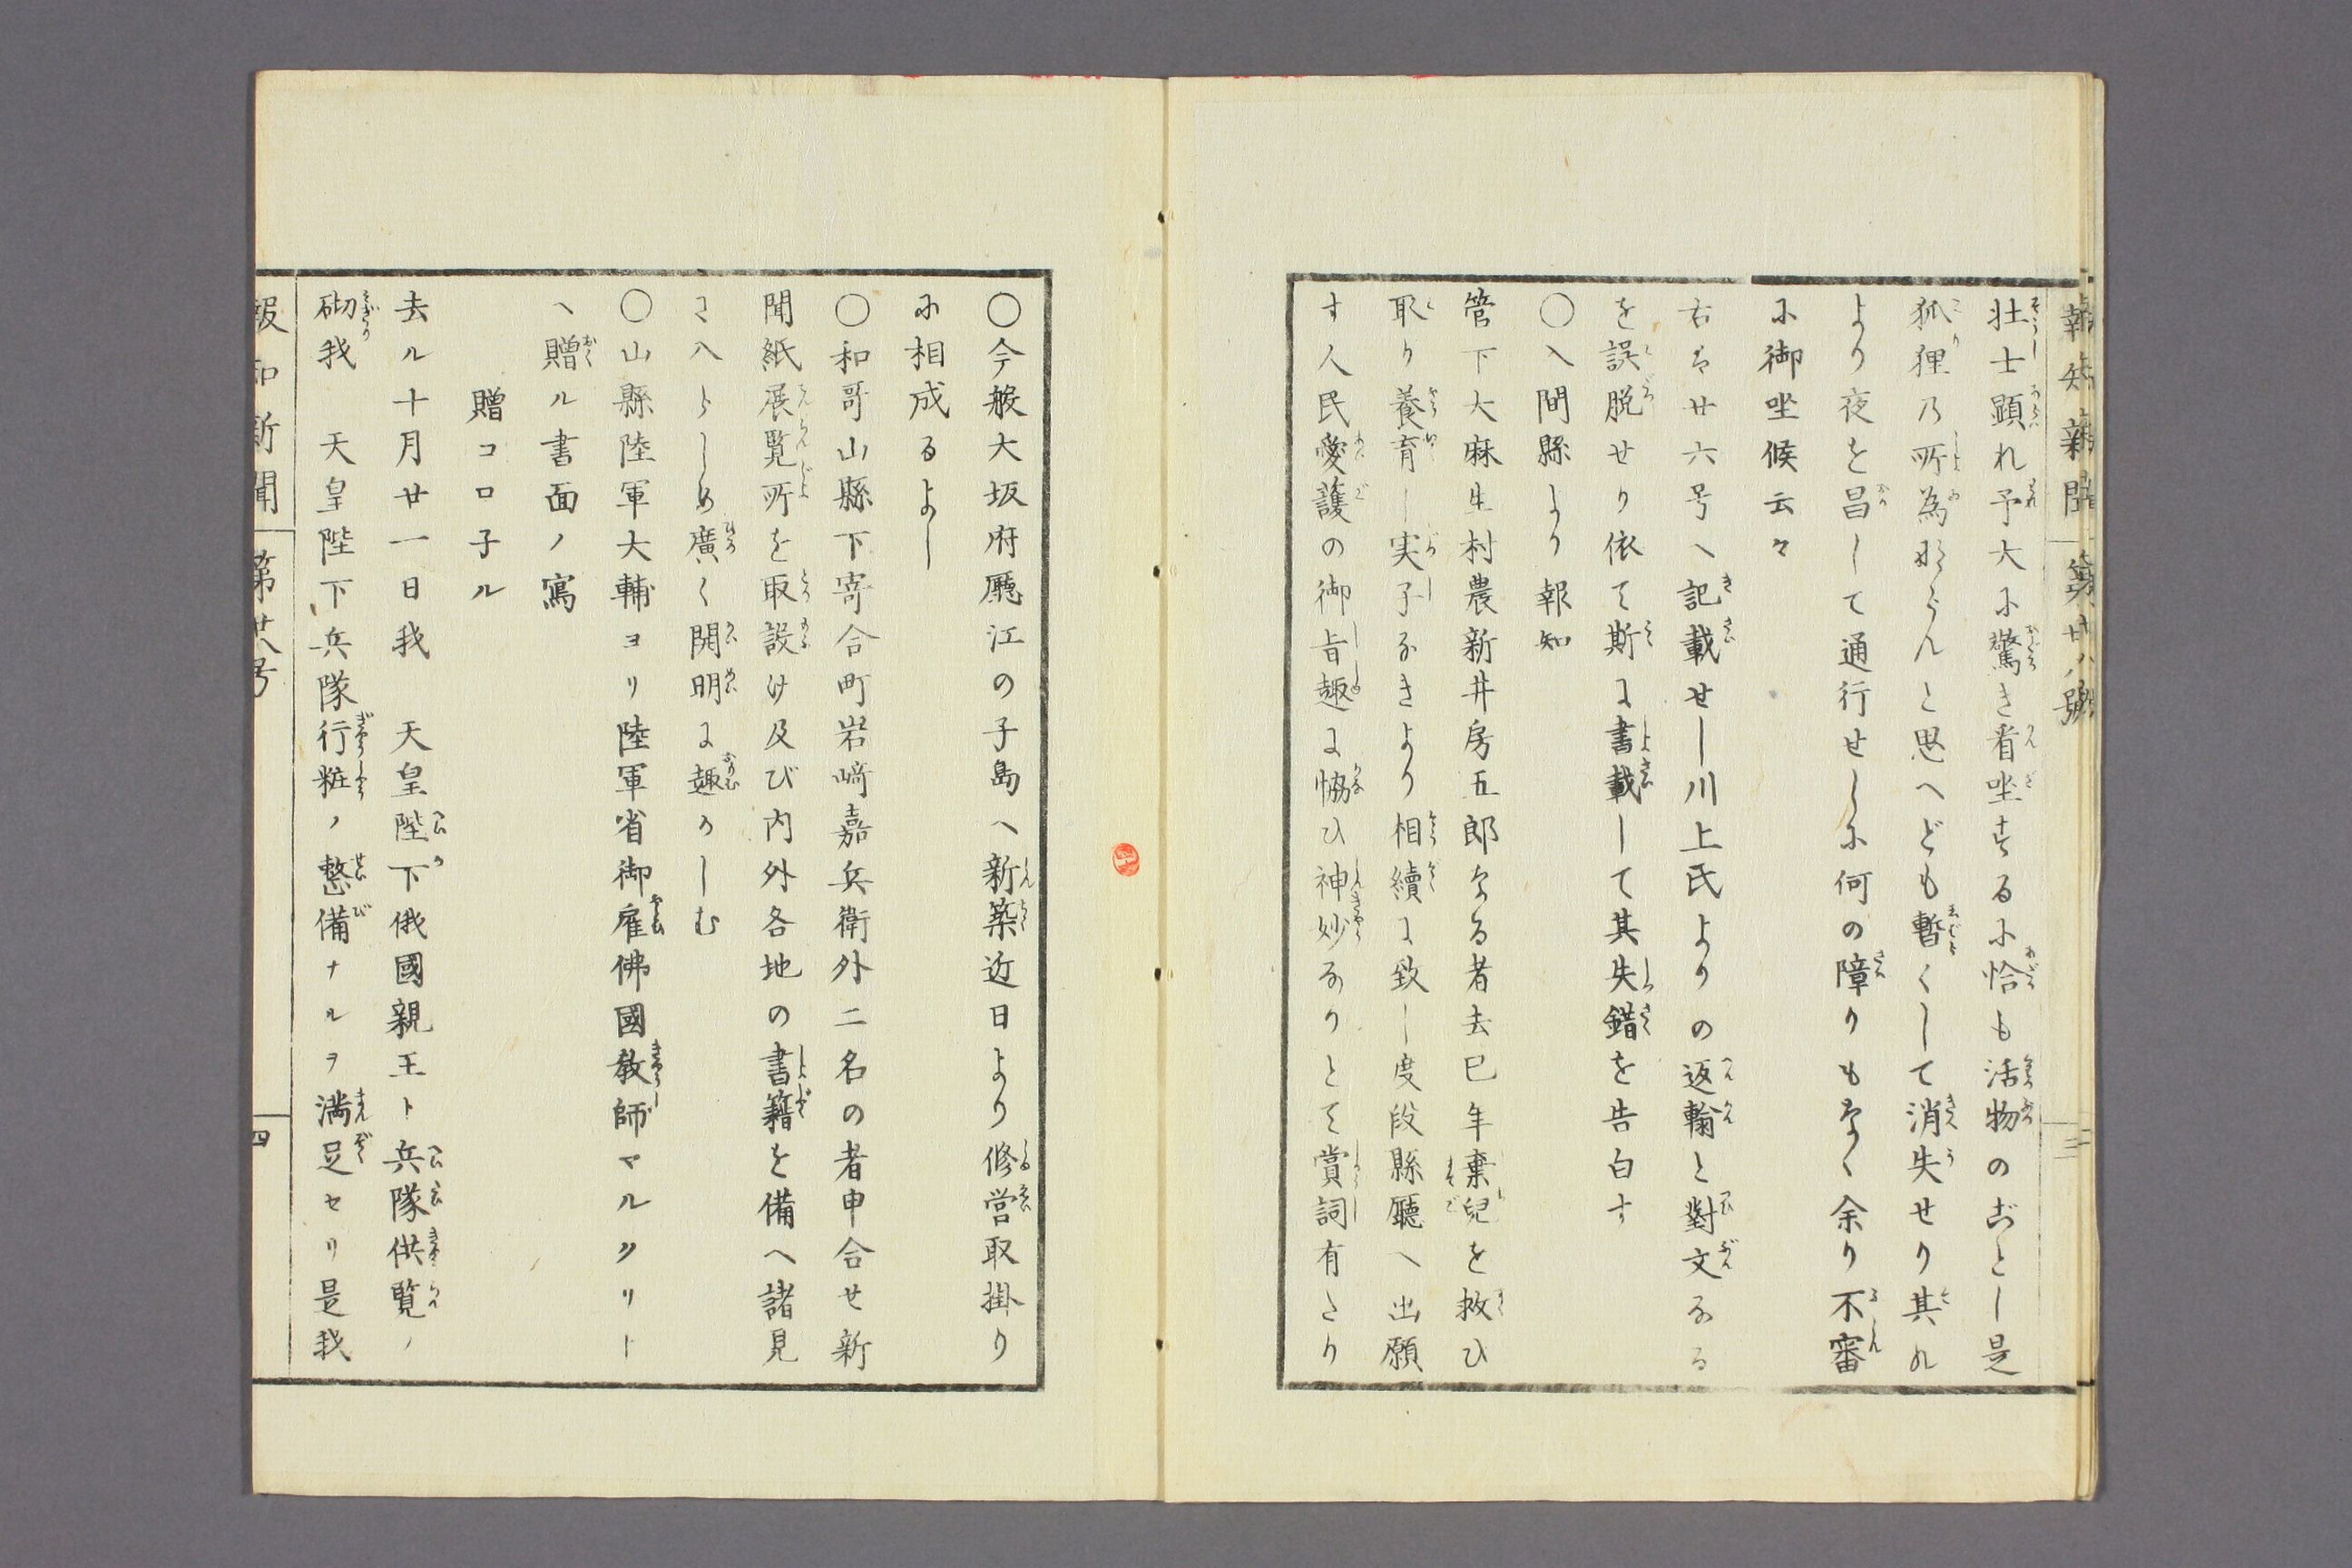 報知新聞 第廿八號 三
壮士顕れ予大に驚き着坐するに恰も活物のごとし是
狐狸乃所為ならんと思へども暫くして消失せり其れ
より夜を冒して通行せしに何の障りもなく余り不審
に御坐候云々
右は廿六号へ記載せし川上氏よりの返翰と對文なる
を誤脱せり依て斯に書載して其失錯を告白す
〇入間縣より報知
管下大麻生村農新井房五郎なる者去巳年棄兒を救ひ
取り養育し実子なきより相續に致し度段縣廳へ出願
す人民愛護の御旨趣に恊ひ神妙なりとて賞詞有たり
〇今般大坂府廳江の子島へ新築近日より修営取掛り
に相成るよし
〇和哥山縣下寄合町岩﨑嘉兵衛外二名の者申合せ新
聞紙展覧所を取設け及び内外各地の書籍を備へ諸見
に入らしめ廣く開明に趣かしむ
〇山縣陸軍大輔ヨリ陸軍省御雇佛國教師マルクリート
ヘ贈ル書面ノ寫
贈コロ子ル
去ル十月廿一日我 天皇陛下俄國親王ト兵隊供覧ノ
砌我 天皇陛下兵隊行粧ノ整備ナルヲ満足セリ是我
報知新聞 第廿八号 四